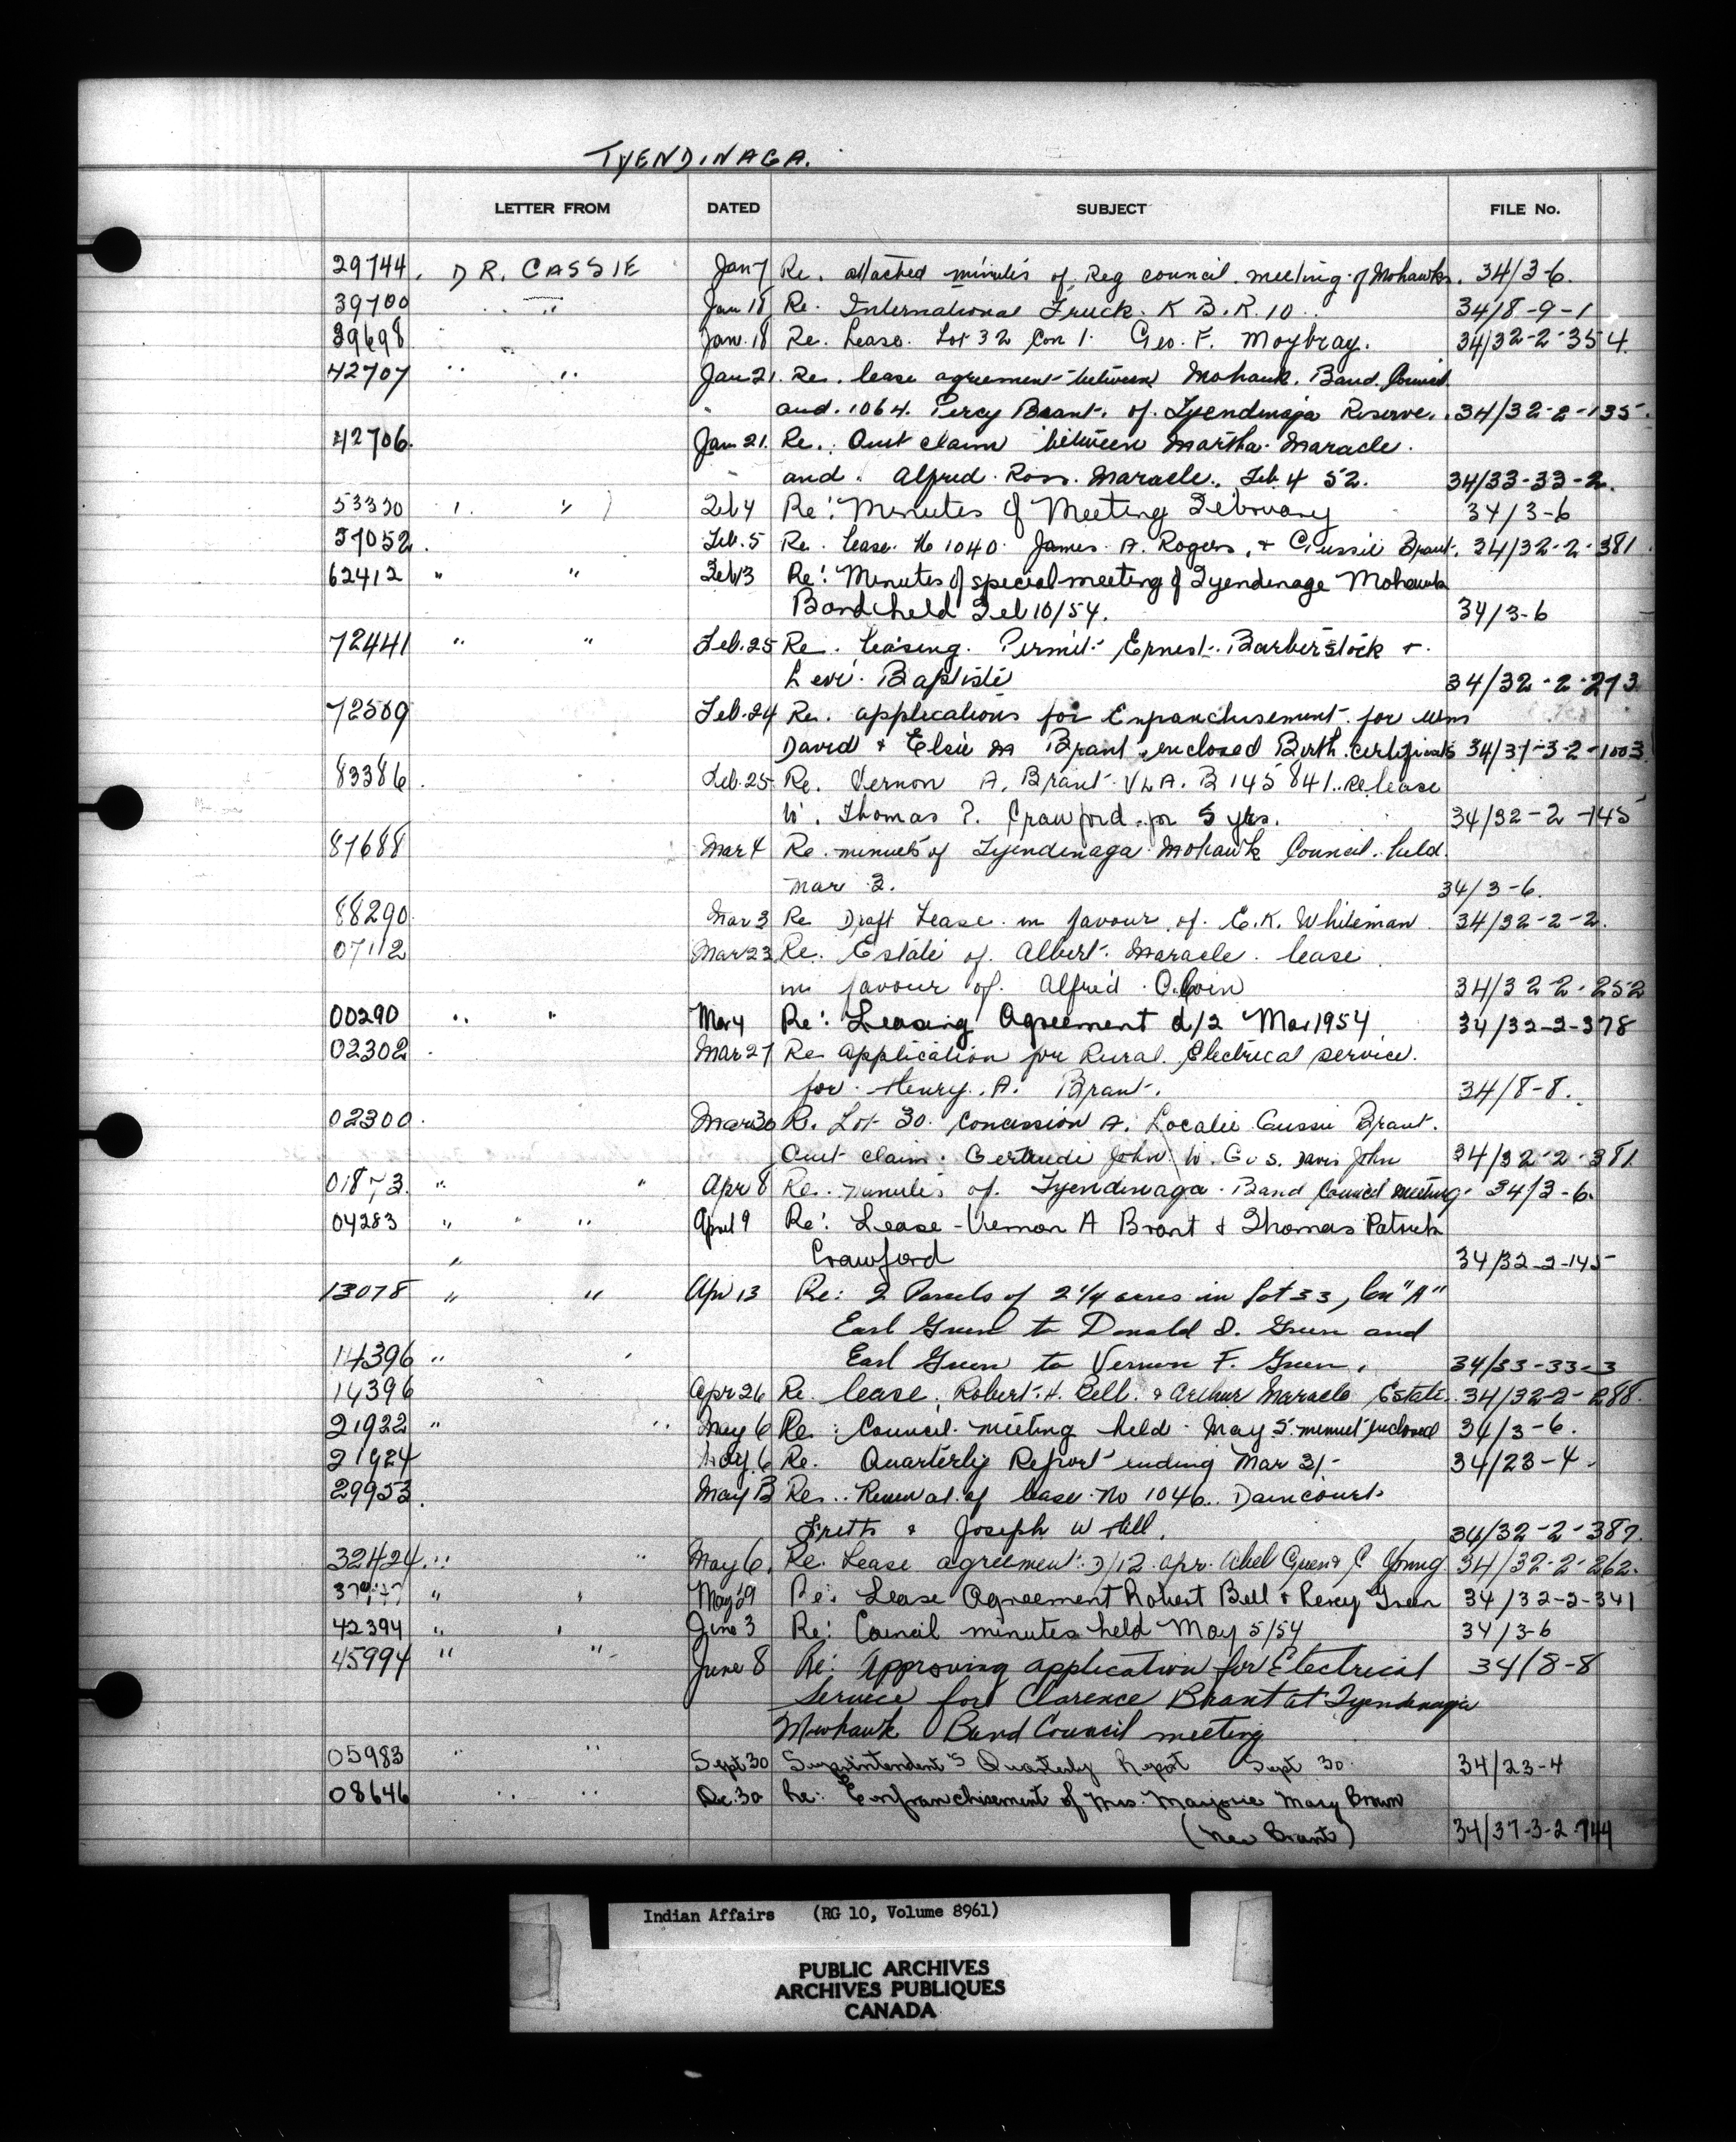 TYENDINAGA.
LETTER FROM DATED SUBJECT FILE No.
29744. DR. CASSIE Jan 7 Re. attached minutes of Reg council meeting of Mohawks. 34/3-6.
39700 " Jan 18 Re. International Truck. K B. R. 10. 34/8-9-1
39698 " Jan. 18 Re. Lease. Lot 32 Con 1. Geo. F. Moybray. 34/32-2-354.
42707 " " Jan 21. Re. lease agreement between Mohawk. Band. Council
and. 1064. Percy Brant. of. Tyendinaga Reserve. 34/32-2-135.
42706. Jan 21. Re. Quit claim between Martha. Maracle.
and. Alfred. Ross. Maracle. Feb 4 52. 34/33-33-2.
53330 " " Feb 4 Re: Minutes of Meeting February 34/3-6
57052. Feb. 5 Re. Lease. No 1040. James. A. Rogers, & Gussie Brant. 34/32-2-381.
62412 " " Feb 13 Re: Minutes of special meeting of Tyendenage Mohawk
Band held Feb 10/54. 34/3-6
72441 " " Feb. 25 Re. Leasing. Permit Ernest. Barberstock &.
Levi. Baptiste 34/32-2-273.
72509 Feb. 24 Re. applications for Enfranchisement for Wm
David & Elsie M Brant enclosed Birth certificates 34/37-3-2-1003
83386. Feb. 25 Re. Vernon A. Brant. VLA. B 145 841. Re lease
W. Thomas P. Crawford. for 5 yrs. 34/32-2-145
87688 Mar 4 Re. minutes of Tyendenaga Mohawk Council. held
Mar 3. 34/3-6.
88290. Mar 3 Re Draft Lease. in favour. of. E.K. Whiteman 34/32-2-2.
07112 Mar 23 Re. Estate of. Albert. Maracle. lease
in favour of. Alfred 34/32-2-252
00290 " " Mar 4 Re: Leasing Agreement d/2 Mar 1954 34/32-2-378
02302. Mar 27 Re application for Rural. Electrical service.
for. Henry. A. Brant. 34/8-8.
02300. Mar 30 R. Lot 30. Concession A. Localie Gussie Brant.
Quit claim. Gertrude John W. G. S. Davis John 34/32-2-381
01873. " " Apr 8 Re. minutes of. Tyendinaga. Band Council meeting. 34/3-6.
04283 " " " April 9 Re: Lease - Vernon A Brant & Thomas Patrick
" Crawford 34/32-2-145
13078 " " Apr 13 Re: 2 Parcels of 2 1/4 acres in Lot 33, Con "A"
Earl Green to Donald D. Green and
14396 " " Earl Green to Vernon F. Green. 34/33-33-3
14396 Apr 26 Re. lease. Robert. H. Bell. & Arthur Maracle Estate. 34/32-2-288.
21922 " " May 6 Re: Council. meeting held. May 5. minuet enclosed 34/3-6.
21924 May. 6 Re. Quarterly Report ending Mar 31- 34/23-4.
29953. May 13 Re.. Renewal. of lease. No 1046.. Daincourt
Fretts & Joseph W Hill. 34/32-2-387.
32424. " " May 6. Re. Lease agreement. D/12. Apr. Abel Green & C Young 34/32-2-262.
" " May 29 Re: Lease Agreement Robert Bell & Percy Green 34/32-2-341
42394 " " June 3 Re: Council minutes held May 5/54 34/3-6
45994 " " June 8 Re: Approving application for Electrical 34/8-8
Service for Clarence Brant at Tyendenaga
Mowhawk Band Council meeting
05983 " " Sept 30 Superintendent's Quarterly Report Sept 30. 34/23-4
08646 " " Dec. 30 Re: Enfranchisement of Mrs. Marjorie Mary Brown
(nee Brant) 34/37-3-2-744
Indian Affairs (RG 10, Volume 8961)
PUBLIC ARCHIVES
ARCHIVES PUBLIQUES
CANADA